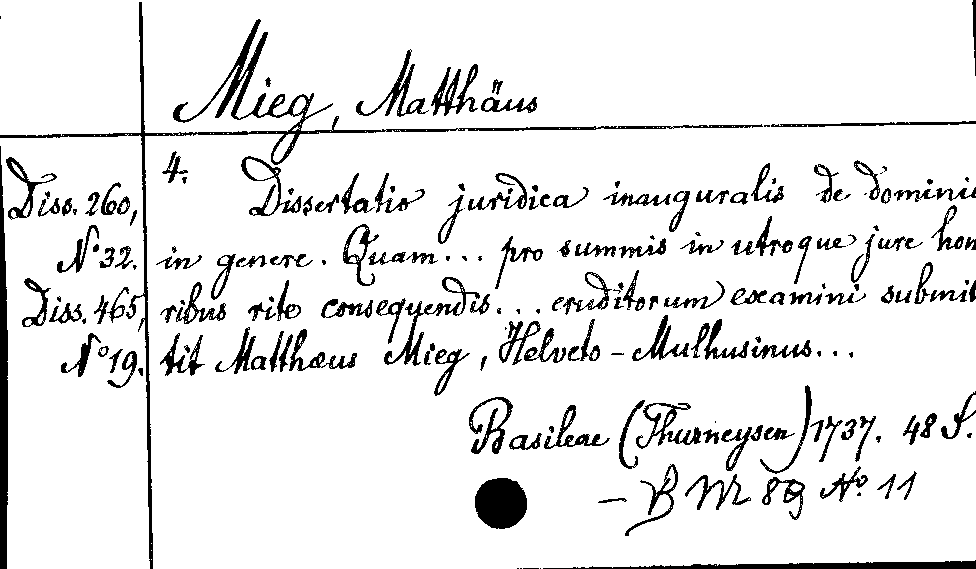 Mieg, Matthäus
4.
Diss. 260,
Dissertatio juridica inauguralis de dominio
No 32.
in genere. Quam... pro summis in utroque jure hon
Diss. 465,
ribus rite consequendis... eruditorum examini submit
No 19.
tit Matthæus Mieg, Helveto-Mulhusinus...
Basileae (Thurneysen) 1737. 48 S.
No. 11